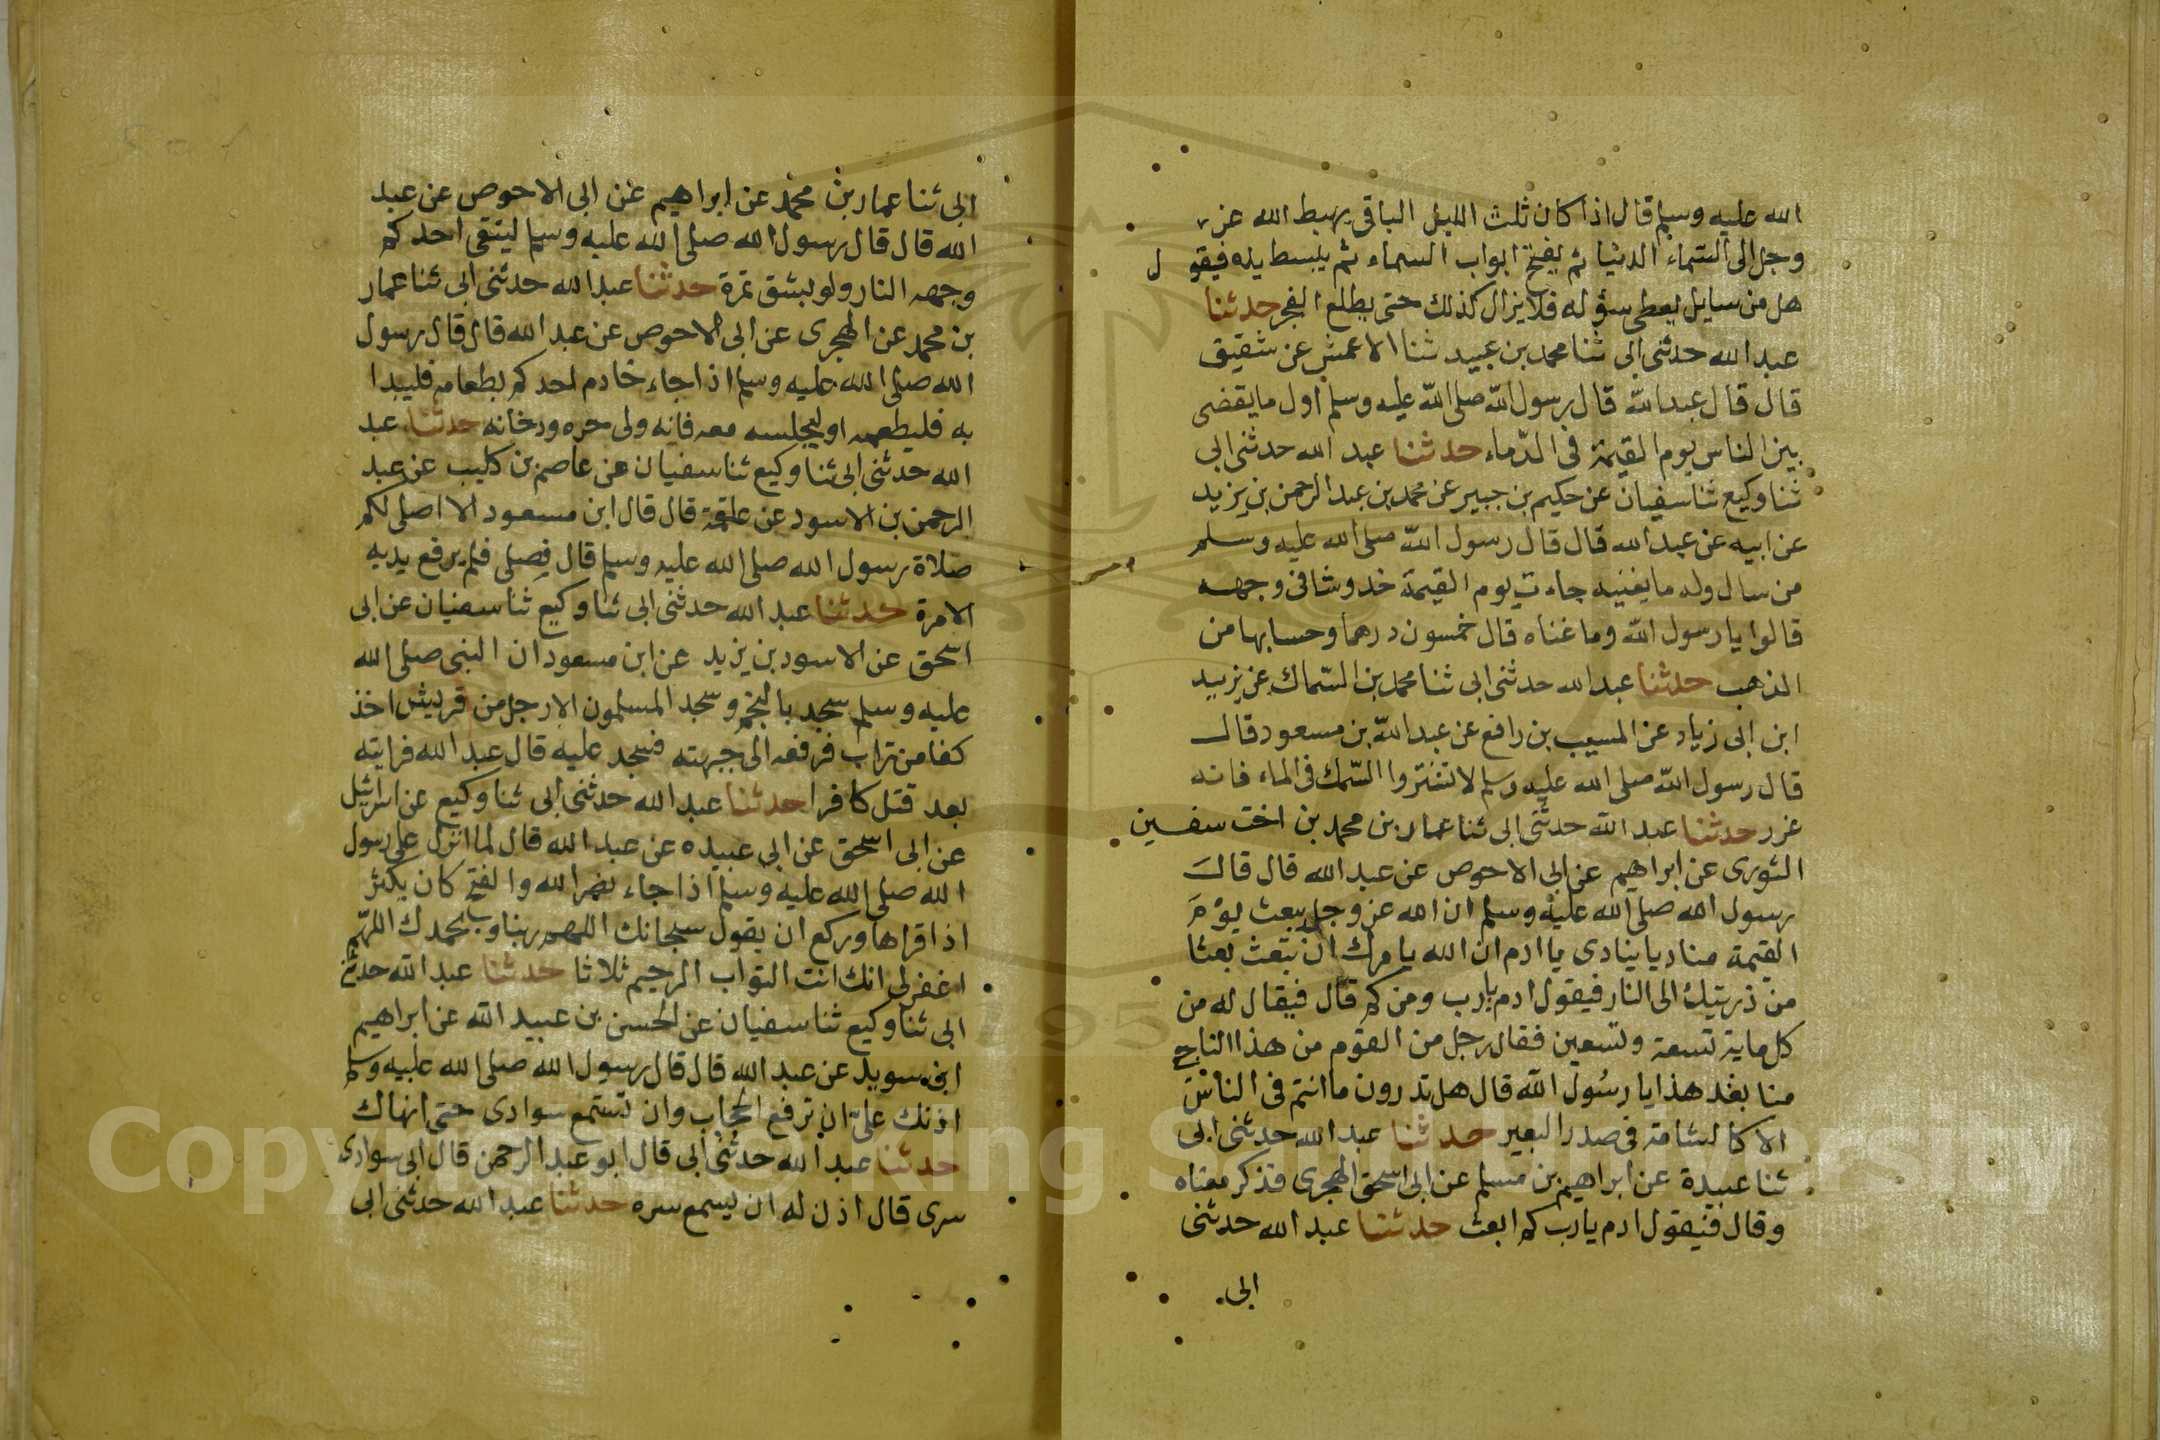 الله عليه وسلم قال اذا كان ثلث الليل الباقى يهبط الله عز
وجل الى السماء الدنيا ثم يفتح ابواب السماء ثم يبسط يده فيقول
هل من سايل يعطى سؤله فلا يزال كذلك حتى يطلع الفجر حدثنا
عبد الله حدثنى ابى ثنا محمد بن عبيد ثنا الاعمش عن شقيق
قال قال عبد الله قال رسول الله صلى الله عليه وسلم اول ما يقضى
بين الناس يوم القيمة فى الدماء حدثنا عبد الله حدثنى ابى
ثنا وكيع ثنا سفيان عن حكيم بن جبير عن محمد بن عبد الرحمن بن يزيد
عن ابيه عن عبد الله قال قال رسول الله صلى الله عليه وسلم
من سال وله ما يغنيه جاءت يوم القيمة خدوشا فى وجهه
قالوا يا رسول الله وما غناه قال خمسون درهما وحسابها من
الذهب حدثنا عبد الله حدثنى ابى ثنا محمد بن السماك عن يزيد
ابن ابى زياد عن المسيب بن رافع عن عبد الله بن مسعود قال
قال رسول الله صلى الله عليه وسلم لا تشتروا السمك فى الماء فانه
غرر حدثنا عبد الله حدثنى ابى ثنا عمار بن محمد بن اخت سفين
الثورى عن ابراهيم عن ابى الاحوص عن عبد الله قال قال
رسول الله صلى الله عليه وسلم ان الله عز وجل يبعث يوم
القيمة مناديا ينادى يا ادم ان الله يامرك ان تبعث بعثا
من ذريتك الى النار فيقول ادم يا رب ومن كم قال فيقال له من
كل ماية تسعة وتسعين فقال رجل من القوم من هذا الناجى
منا بعد هذا يا رسول الله قال هل تدرون ما انتم فى الناس
الا كالشامة فى صدر البعير حدثنا عبد الله حدثنى ابى
ثنا عبيدة عن ابراهيم بن مسلم عن ابى اسحق الهجرى فذكر معناه
وقال فيقول ادم يا رب كم ابعث حدثنا عبد الله حدثنى
ابى
ابى ثنا عمار بن محمد عن ابراهيم عن ابى الاحوص عن عبد
الله قال قال رسول الله صلى الله عليه وسلم ليتقى احدكم
وجهه النار ولو بشق تمرة حدثنا عبد الله حدثنى ابى ثنا عمار
بن محمد عن الهجرى عن ابى الاحوص عن عبد الله قال قال رسول
الله صلى الله عليه وسلم اذا جاء خادم احدكم بطعامه فليبدا
به فليطعمه او ليجلسه معه فانه ولى حره ودخانه حدثنا عبد
الله حدثنى ابى ثنا وكيع ثنا سفيان عن عاصم بن كليب عن عبد
الرحمن بن الاسود عن علقمة قال قال ابن مسعود الا اصلى لكم
صلاة رسول الله صلى الله عليه وسلم قال فصلى فلم يرفع يديه
الا مرة حدثنا عبد الله حدثنى ابى ثنا وكيع ثنا سفيان عن ابى
اسحق عن الاسود بن يزيد عن ابن مسعود ان النبى صلى الله
عليه وسلم سجد بالنجم وسجد المسلمون الا رجل من قريش اخذ
كفا من تراب فرفعه الى جبهته فسجد عليه قال عبد الله فرايته
بعد قتل كافرا حدثنا عبد الله حدثنى ابى ثنا وكيع عن اسرائيل
عن ابى اسحق عن ابى عبيده عن عبد الله قال لما انزل على رسول
الله صلى الله عليه وسلم اذا جاء نصر الله والفتح كان يكثر
اذا قراها وركع ان يقول سبحانك اللهم ربنا وبحمدك اللهم
اغفر لى انك انت التواب الرحيم ثلاثا حدثنا عبد الله حدثنى
ابى ثنا وكيع ثنا سفيان عن الحسن بن عبيد الله عن ابراهيم
ابن سويد عن عبد الله قال قال رسول الله صلى الله عليه وسلم
اذنك على ان ترفع الحجاب وان تستمع سوادى حتى انهاك
حدثنا عبد الله حدثنى ابى قال ابو عبد الرحمن قال ابى سوادى
سرى قال اذن له ان يسمع سره حدثنا عبد الله حدثنى ابى